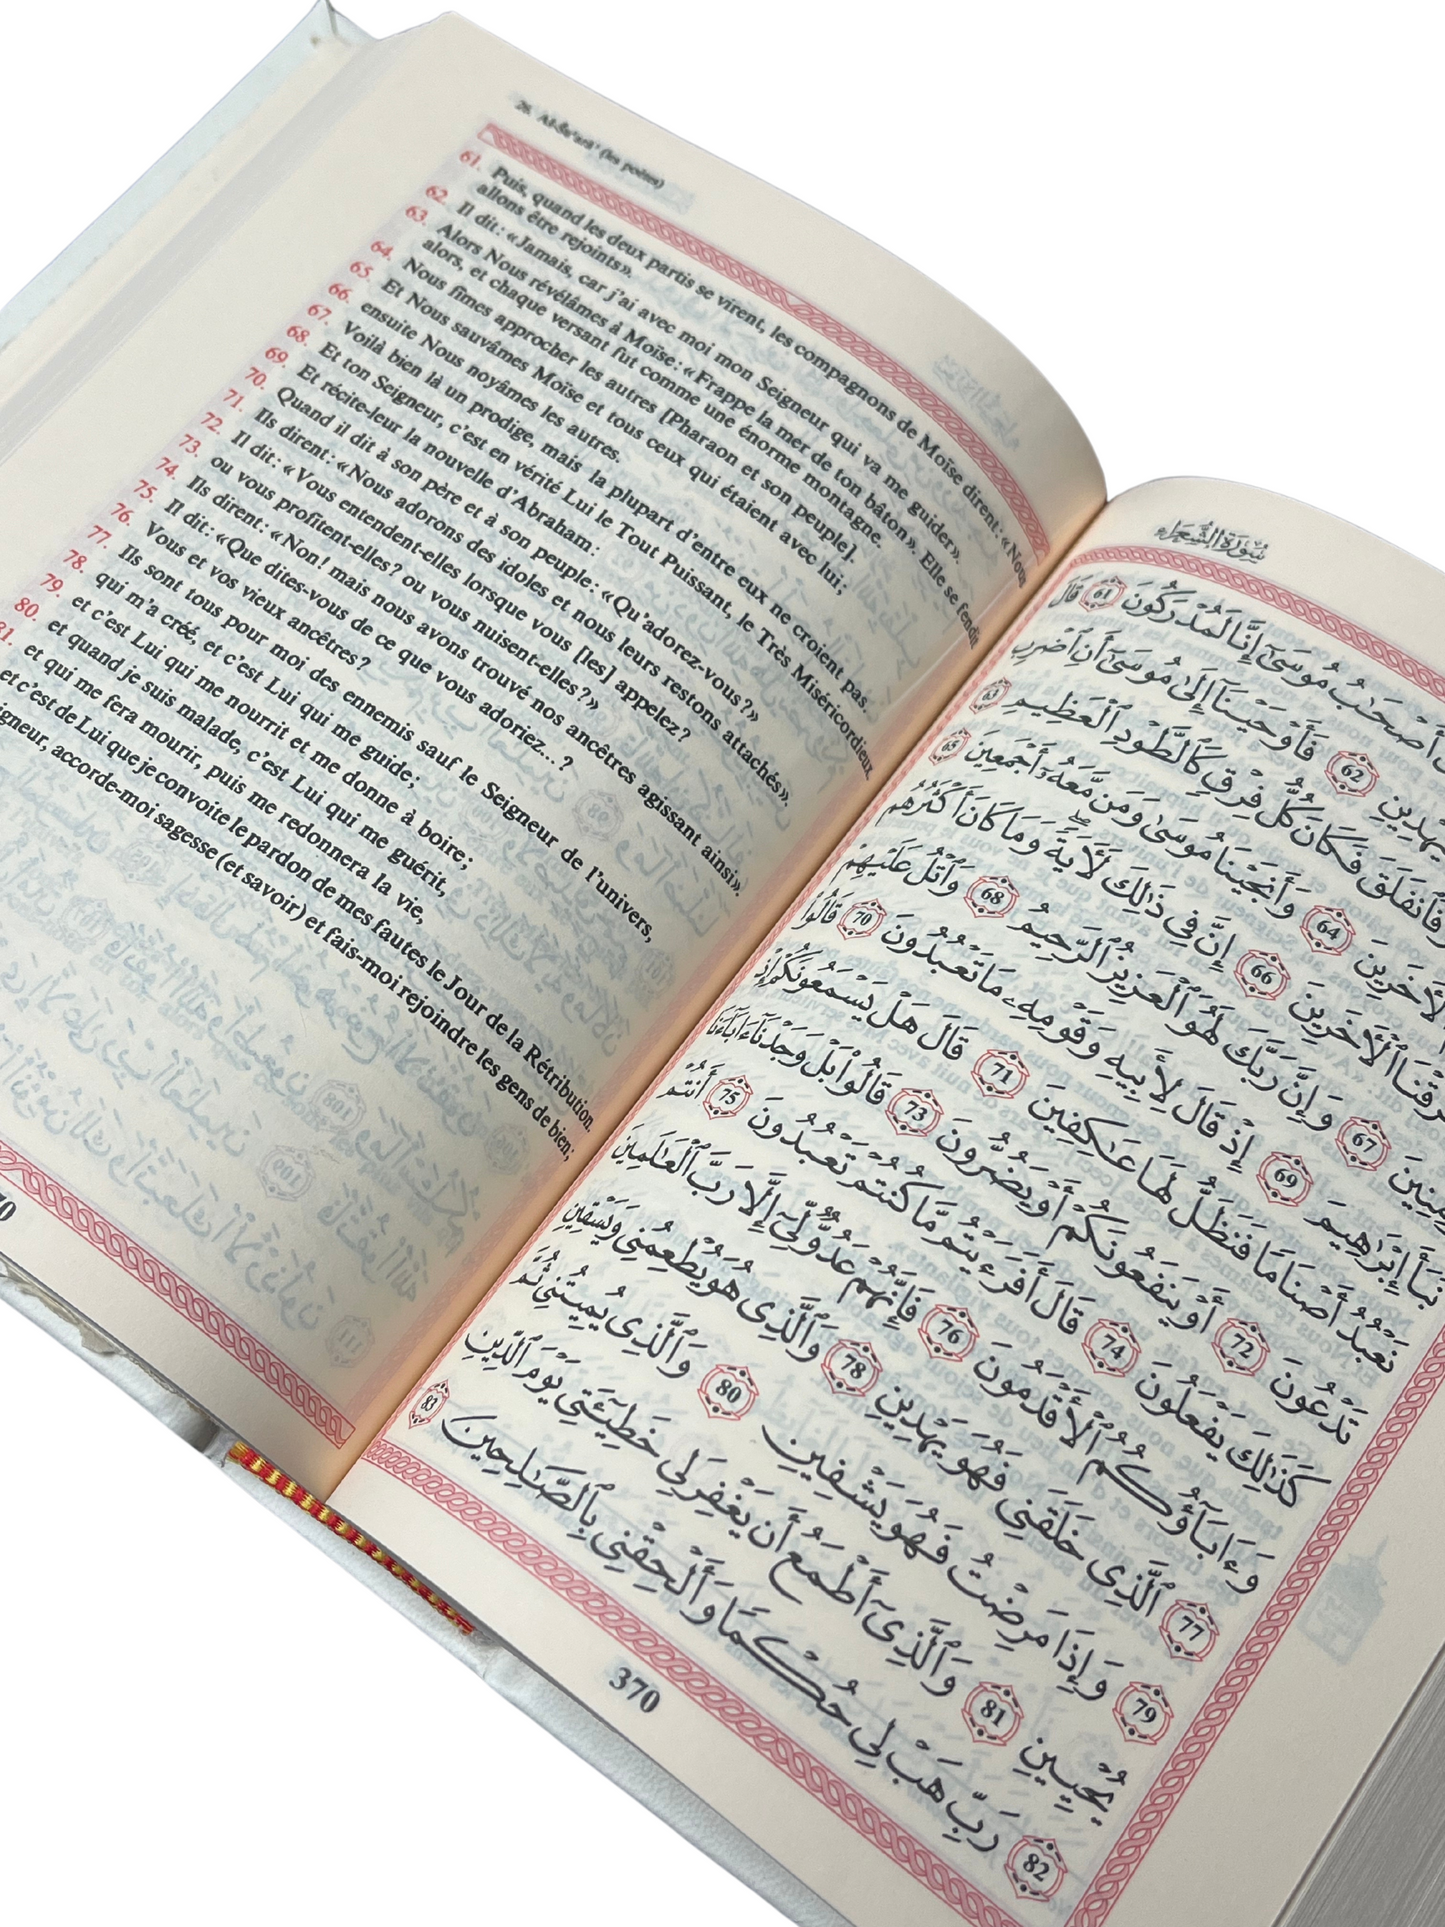 26. Al-Šu'arā' (les poètes)
61. Puis, quand les deux partis se virent, les compagnons de Moïse dirent: «Nous
allons être rejoints».
62. Il dit: «Jamais, car j'ai avec moi mon Seigneur qui va me guider».
63. Alors Nous révélâmes à Moïse: «Frappe la mer de ton bâton». Elle se fendit
alors, et chaque versant fut comme une énorme montagne.
64. Nous fîmes approcher les autres [Pharaon et son peuple].
65. Et Nous sauvâmes Moïse et tous ceux qui étaient avec lui;
66. ensuite Nous noyâmes les autres.
67. Voilà bien là un prodige, mais la plupart d'entre eux ne croient pas.
68. Et ton Seigneur, c'est en vérité Lui le Tout Puissant, le Très Miséricordieux.
69. Et récite-leur la nouvelle d'Abraham:
70. Quand il dit à son père et à son peuple: «Qu'adorez-vous?»
71. Ils dirent: «Nous adorons des idoles et nous leurs restons attachés».
72. Il dit: «Vous entendent-elles lorsque vous [les] appelez?
73. ou vous profitent-elles? ou vous nuisent-elles?»
74. Ils dirent: «Non! mais nous avons trouvé nos ancêtres agissant ainsi».
75. Il dit: «Que dites-vous de ce que vous adoriez...?
76. Vous et vos vieux ancêtres?
77. Ils sont tous pour moi des ennemis sauf le Seigneur de l'univers,
78. qui m'a créé, et c'est Lui qui me guide;
79. et c'est Lui qui me nourrit et me donne à boire;
80. et quand je suis malade, c'est Lui qui me guérit,
81. et qui me fera mourir, puis me redonnera la vie,
et c'est de Lui que je convoite le pardon de mes fautes le Jour de la Rétribution.
gneur, accorde-moi sagesse (et savoir) et fais-moi rejoindre les gens de bien;
سُورَةُ الشُّعَرَاء
أَصْحَٰبُ مُوسَىٰٓ إِنَّا لَمُدْرَكُونَ 61 قَالَ
يَهْدِينِ 62 فَأَوْحَيْنَآ إِلَىٰ مُوسَىٰٓ أَنِ ٱضْرِب
فَٱنفَلَقَ فَكَانَ كُلُّ فِرْقٍ كَٱلطَّوْدِ ٱلْعَظِيمِ 63
ٱلْءَاخَرِينَ 64 وَأَنجَيْنَا مُوسَىٰ وَمَن مَّعَهُۥٓ أَجْمَعِينَ 65
رَقْنَا ٱلْءَاخَرِينَ 66 إِنَّ فِي ذَٰلِكَ لَءَايَةً وَمَا كَانَ أَكْثَرُهُم
مِنِينَ 67 وَإِنَّ رَبَّكَ لَهُوَ ٱلْعَزِيزُ ٱلرَّحِيمُ 68 وَٱتْلُ عَلَيْهِمْ
نَبَأَ إِبْرَٰهِيمَ 69 إِذْ قَالَ لِأَبِيهِ وَقَوْمِهِۦ مَا تَعْبُدُونَ 70 قَالُوا۟
نَعْبُدُ أَصْنَامًا فَنَظَلُّ لَهَا عَٰكِفِينَ 71 قَالَ هَلْ يَسْمَعُونَكُمْ إِذْ
تَدْعُونَ 72 أَوْ يَنفَعُونَكُمْ أَوْ يَضُرُّونَ 73 قَالُوا۟ بَلْ وَجَدْنَآ ءَابَآءَنَا
كَذَٰلِكَ يَفْعَلُونَ 74 قَالَ أَفَرَءَيْتُم مَّا كُنتُمْ تَعْبُدُونَ 75 أَنتُمْ
وَءَابَآؤُكُمُ ٱلْأَقْدَمُونَ 76 فَإِنَّهُمْ عَدُوٌّ لِّيٓ إِلَّا رَبَّ ٱلْعَٰلَمِينَ
77 ٱلَّذِي خَلَقَنِي فَهُوَ يَهْدِينِ 78 وَٱلَّذِي هُوَ يُطْعِمُنِي وَيَسْقِينِ
79 وَإِذَا مَرِضْتُ فَهُوَ يَشْفِينِ 80 وَٱلَّذِي يُمِيتُنِي ثُمَّ
يُحْيِينِ 81 وَٱلَّذِيٓ أَطْمَعُ أَن يَغْفِرَ لِي خَطِيٓـَٔتِي يَوْمَ ٱلدِّينِ
82 رَبِّ هَبْ لِي حُكْمًا وَأَلْحِقْنِي بِٱلصَّٰلِحِينَ 83
370